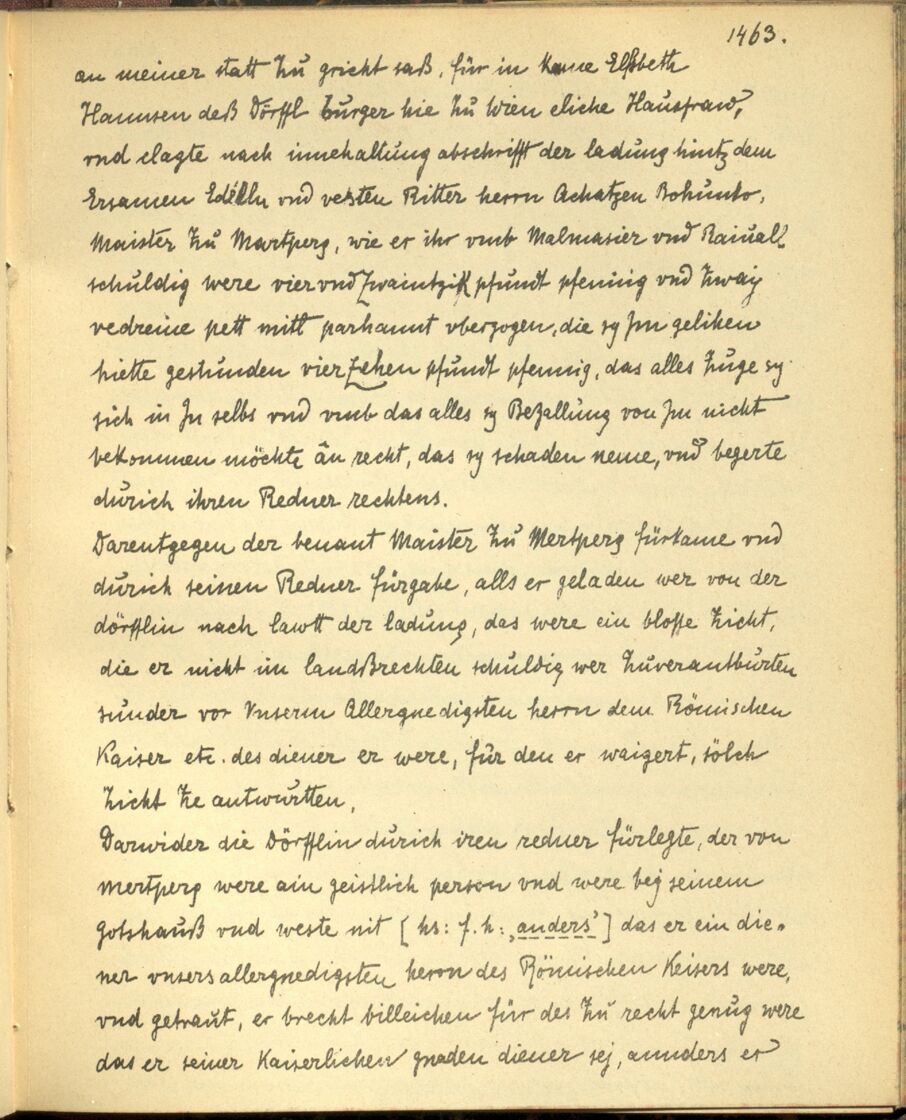 1463.
an meiner statt zu gricht saß, für in kame Elßbeth
Hannsen deß Dörffl burger hie zu Wien eliche Hausfraw,
vnd clagte nach innehaltung abschrifft der ladung hintz dem
Ersamen Edelln vnd vesten Ritter herrn Achatzen Bohunko,
Maister zu Martperg, wie er ihr vmb Malmasier vnd Rainuall
schuldig were vier vnd zwaintzik pfundt pfennig vnd zway
vedreine pett mitt parhannt vberzogen, die sy Jm gelihen
hiette gestunden vierzehen pfundt pfennig, das alles zuge sy
sich in Jn selbs vnd vmb das alles sy Bezallung von Jm nicht
bekommen möchte ân recht, das sy schaden neme, vnd begerte
durich ihren Redner rechtens.
Darentgegen der benant Maister zu Mertperg fürkame vnd
durich seinen Redner fürgabe, alls er geladen wer von der
dörfflin nach lawtt der ladung, das were ein blosse zicht,
die er nicht im landßrechten schuldig wer zuverantburten
sunder vor Vnserm Allergnedigsten herrn dem Römischen
Kaiser etc. des diener er were, für den er waigert, sölch
zicht ze antwurtten,
Darwider die Dörfflin durich iren redner fürlegte, der von
Mertperg were ain geistlich person vnd were bej seinem
Gotshauß vnd weste nit [hs: f. h: ‚anders‘] das er ein die-
ner vnsers allergnedigsten herrn des Römischen Keisers were,
vnd getraut, er brecht billeichen für des zu recht genug were
das er seiner Kaiserlichen gnaden diener sej, annders er